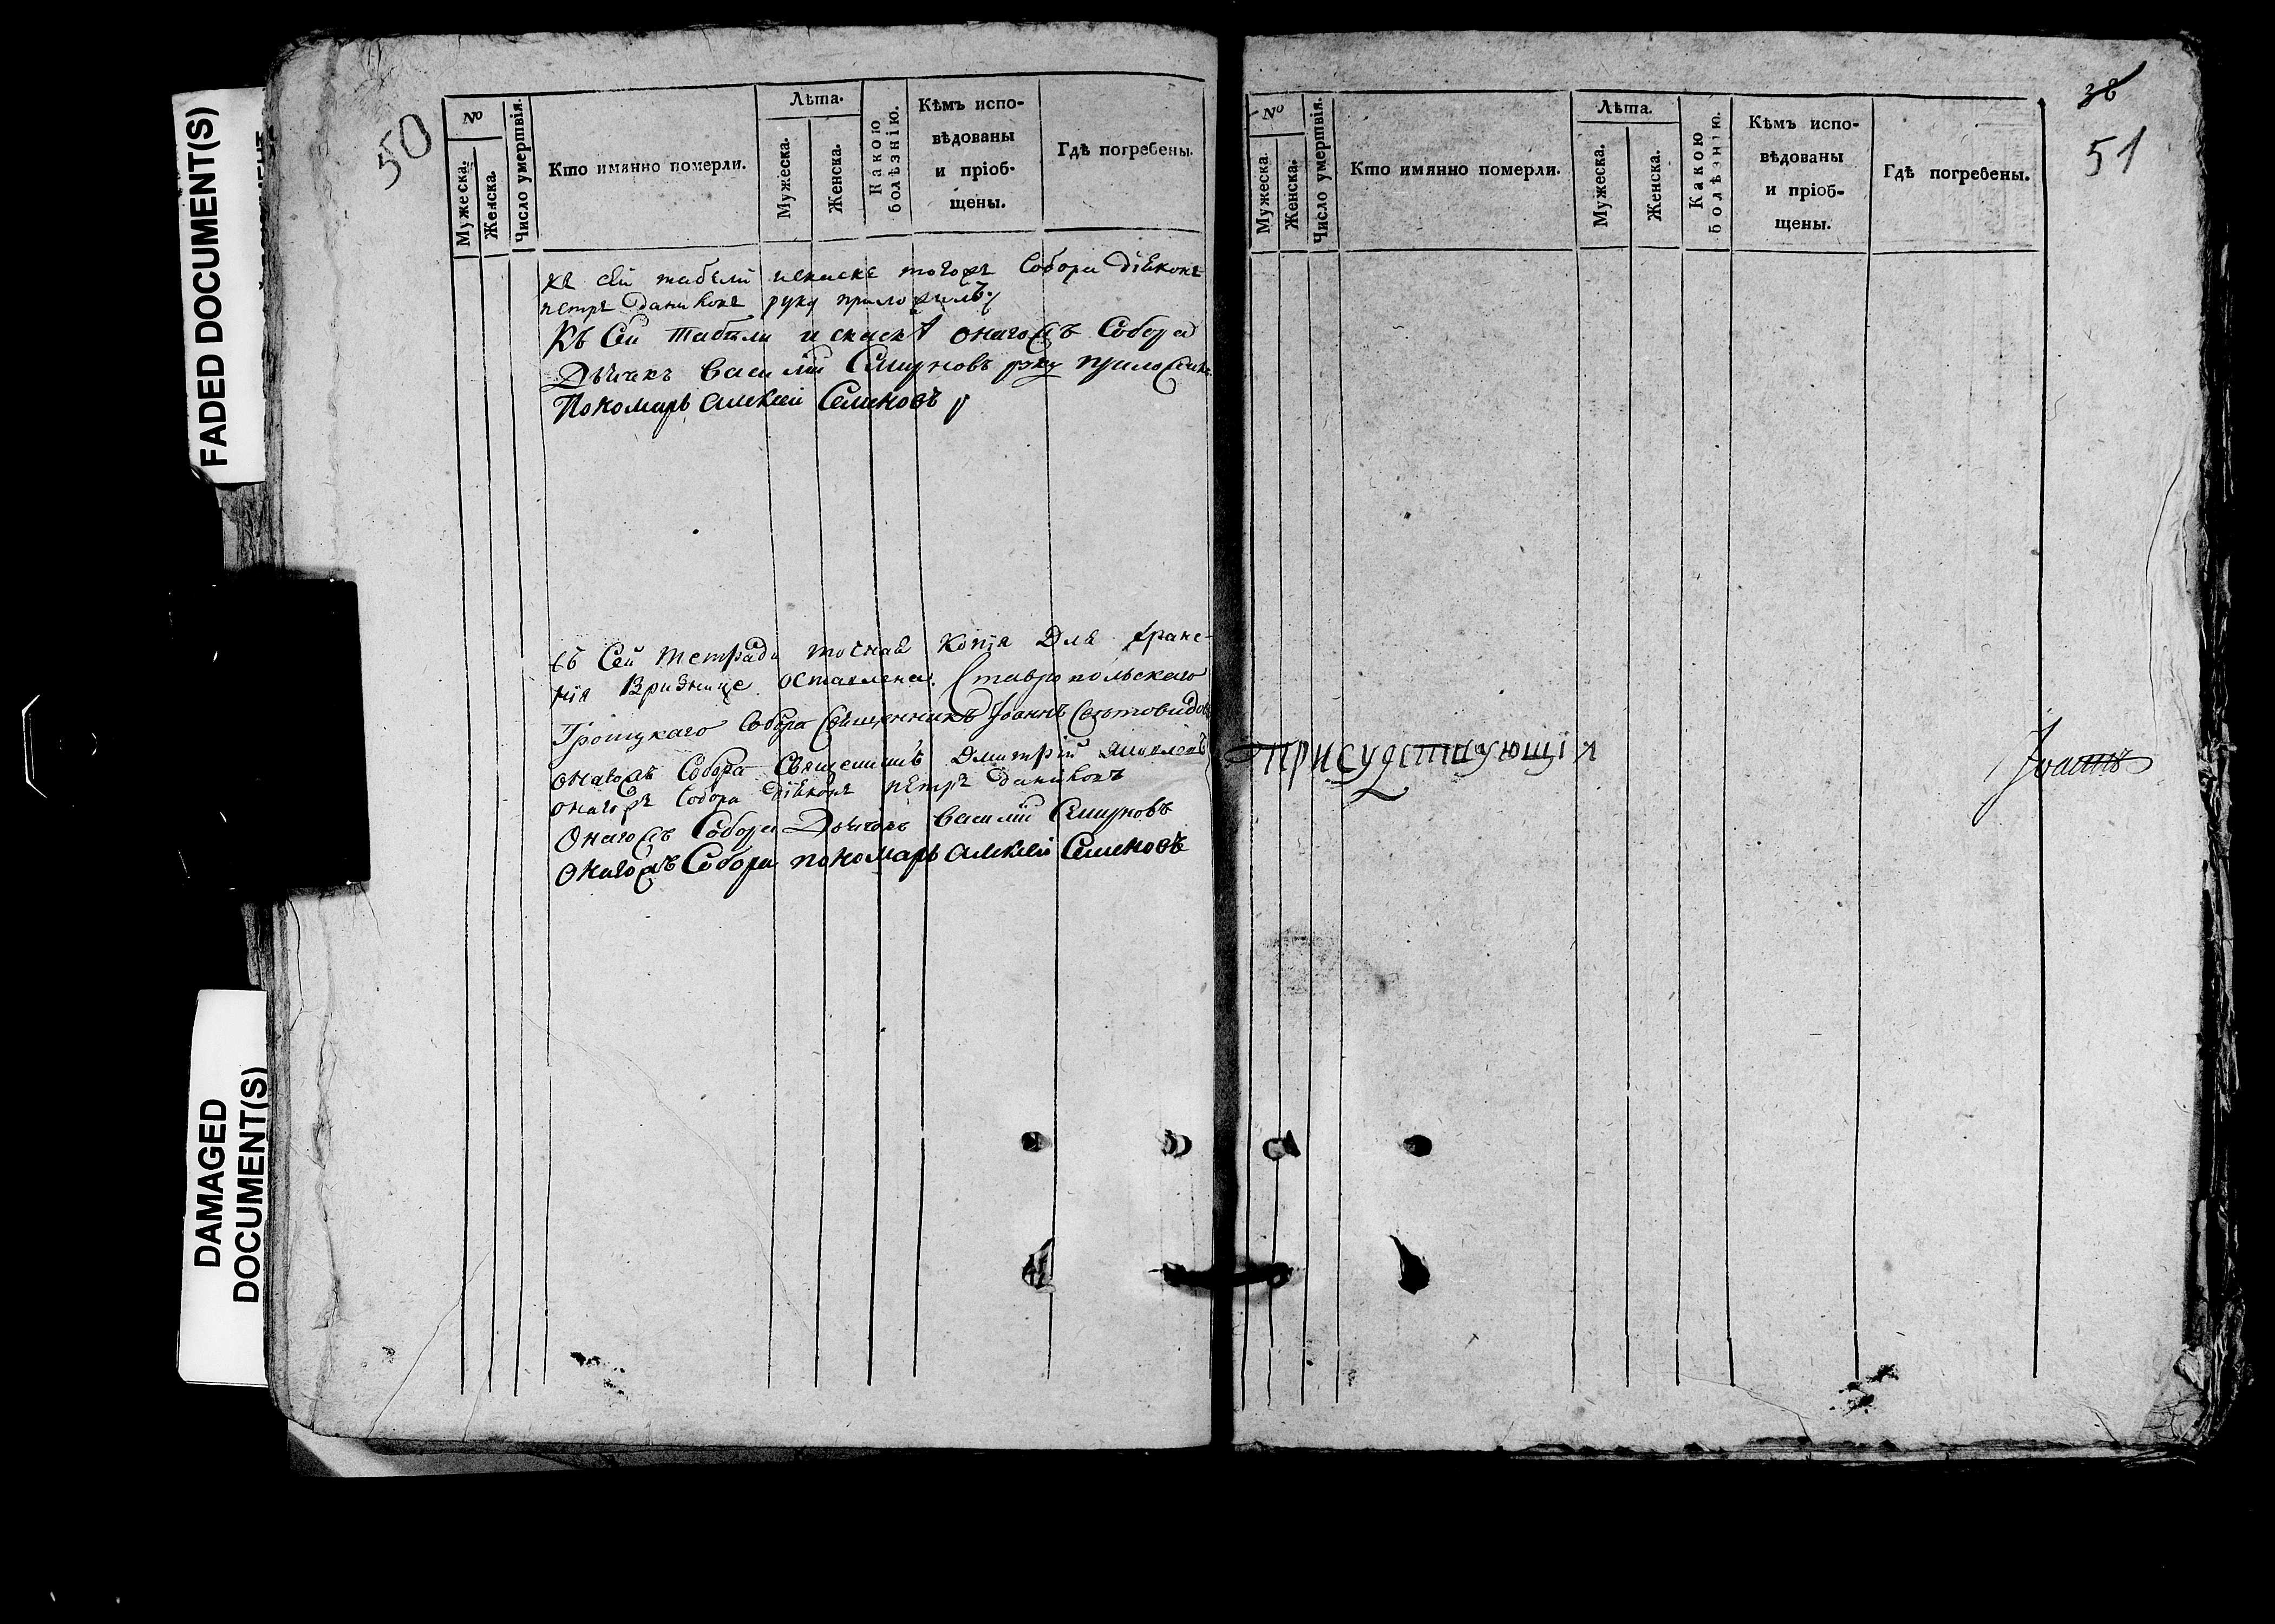 FADED DOCUMENT(S)
DAMAGED
DOCUMENT(S)
50
№
Мужеска.
Женска.
Число умертвія.
Кто имянно померли.
Лѣта.
Мужеска.
Женска.
Какою
болѣзнію.
Кѣмъ испо-
вѣдованы
и пріоб-
щены.
Гдѣ погребены.
къ сей табели искаске тогожъ Собора діаконъ
петръ руку приложилъ
Къ Сей Табели и скаскѣ оногожъ Собора
Дьячекъ василій Смирновъ руку приложилъ
Пономарь алексей Семеновъ
съ Сей тетради точная копія для хране-
нія вризнице оставлена. Ставропольскаго
Троицкаго Собора Священникъ Іоаннъ Световидовъ
оногожъ Собора Священникъ Дмитрій
оногожъ Собора діаконъ петръ
Оногожъ Собора Дьячекъ василій Смирновъ
оногожъ Собора пономарь алексей Семеновъ
38
51
№
Мужеска.
Женска.
Число умертвія.
Кто имянно померли.
Лѣта.
Мужеска.
Женска.
Какою
болѣзнію.
Кѣмъ испо-
вѣдованы
и пріоб-
щены.
Гдѣ погребены.
присудствующій
Іоаннъ